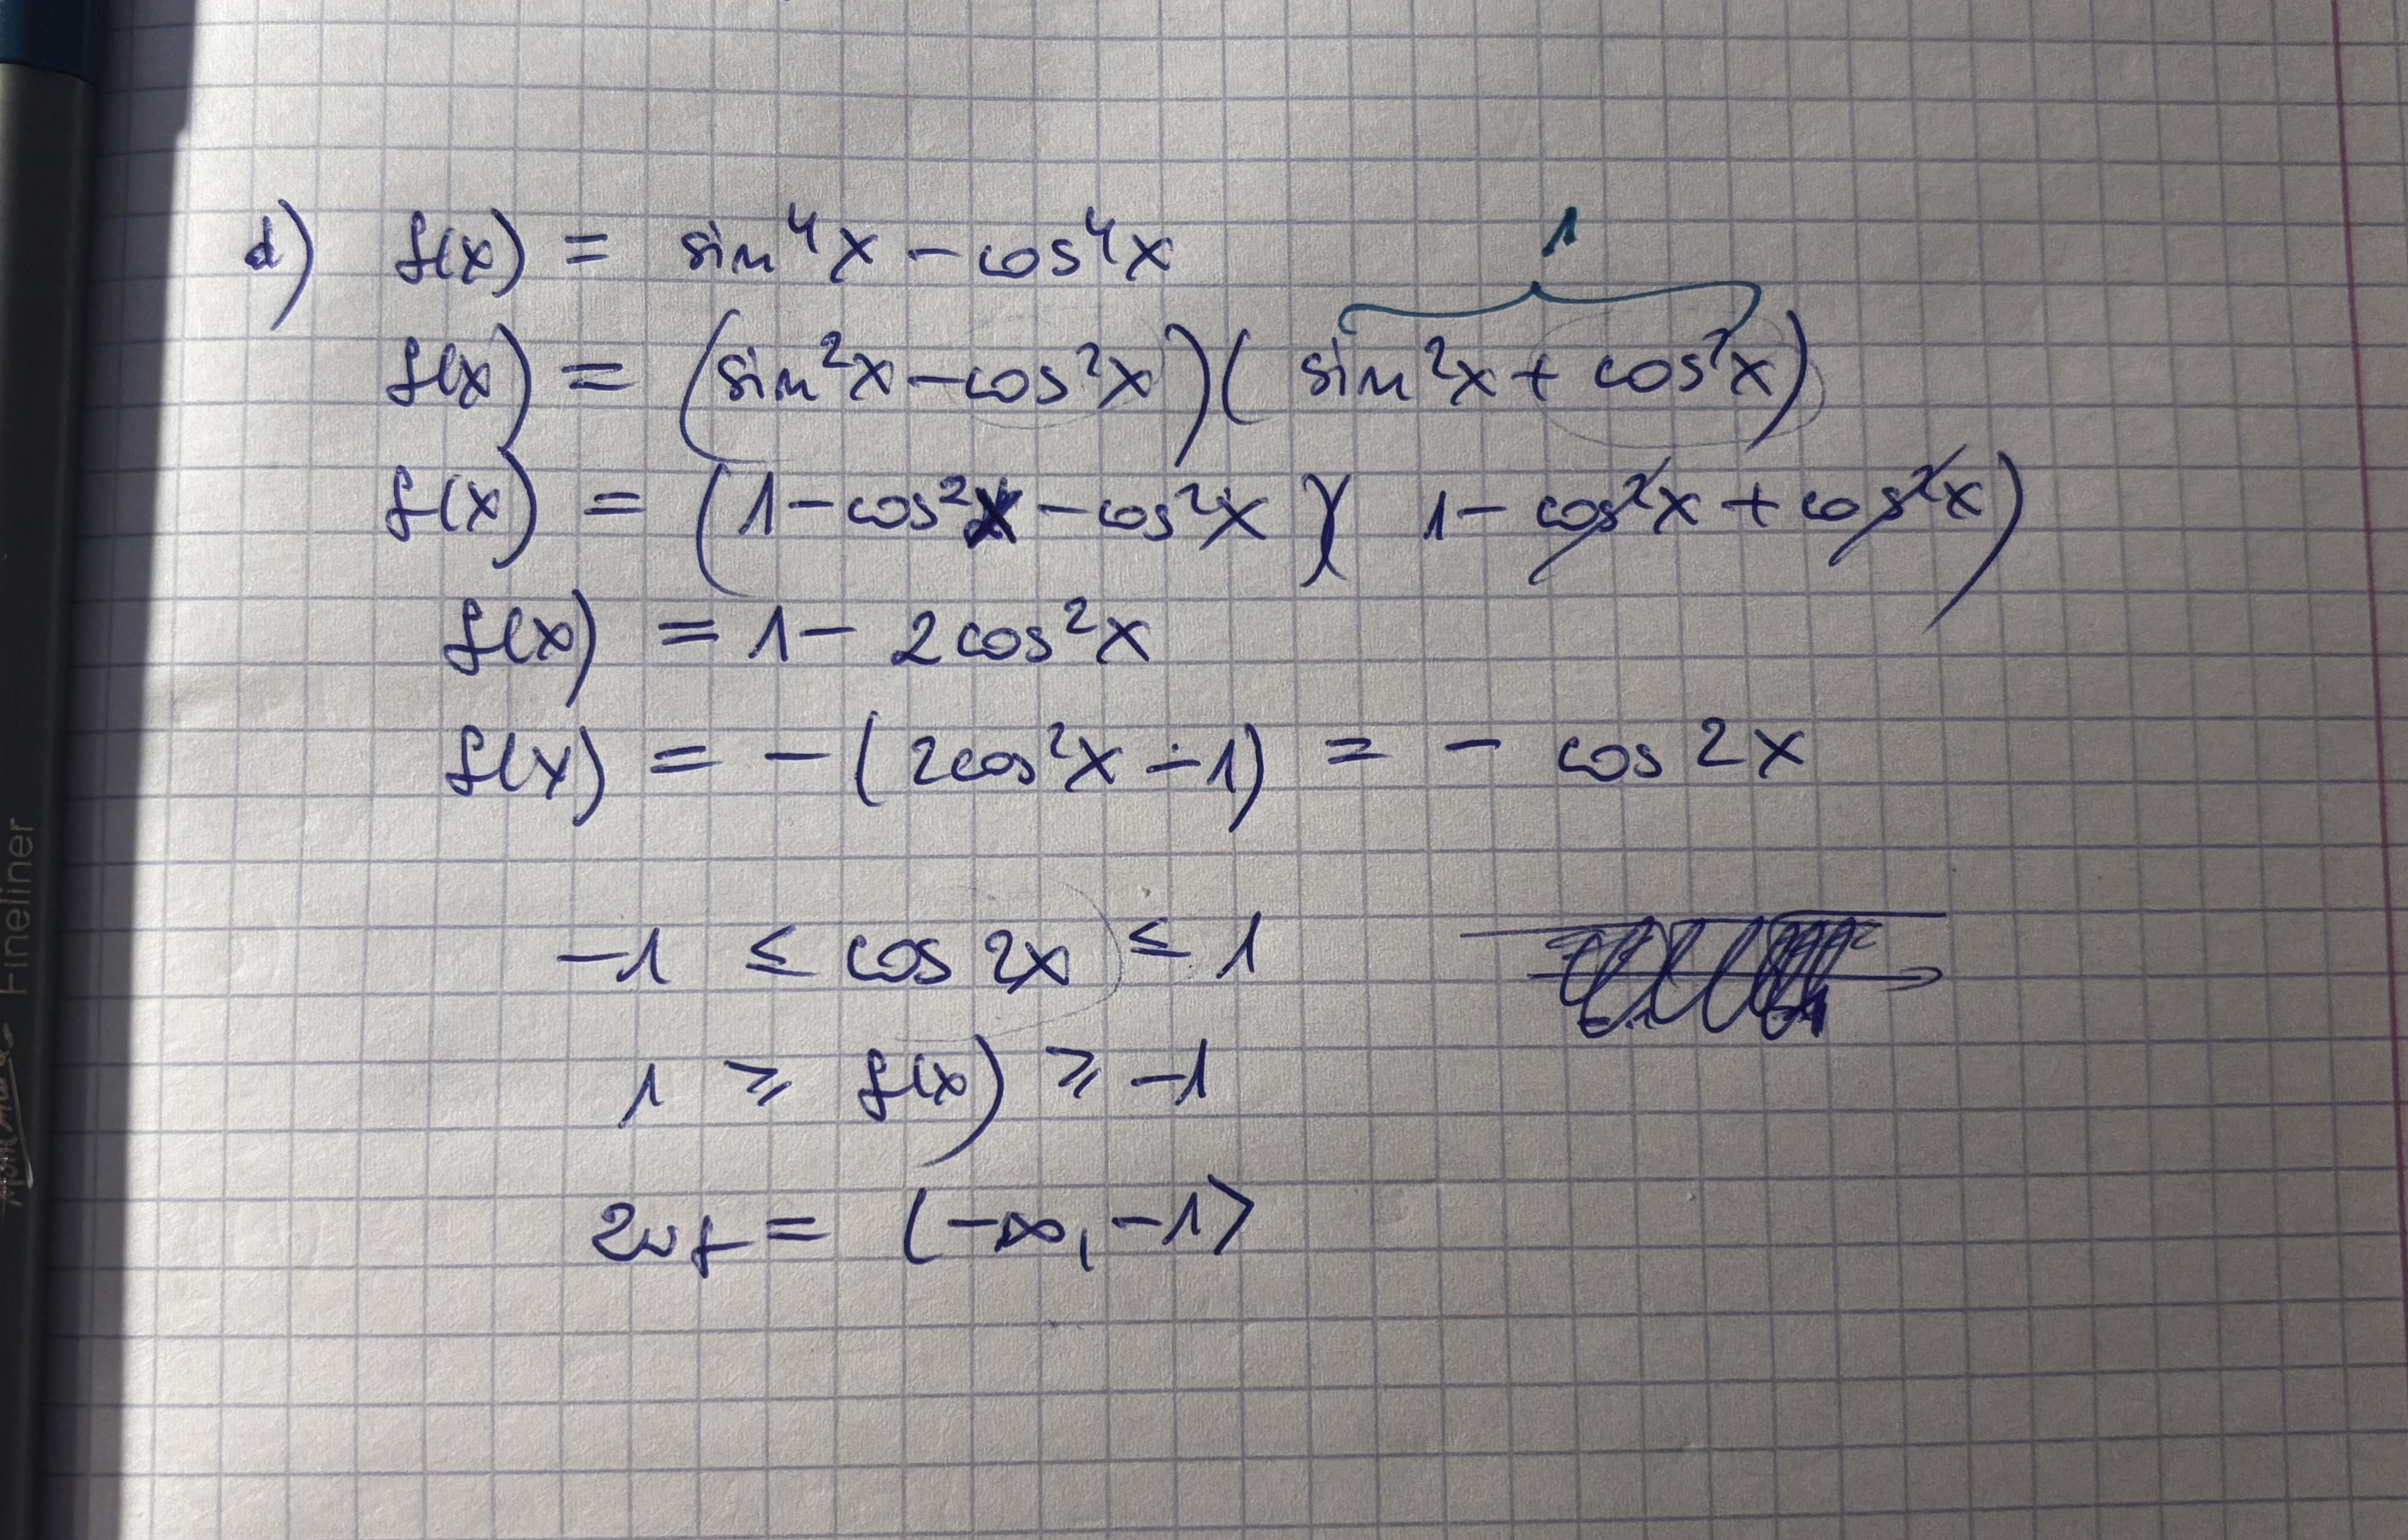 d) f(x) = sin⁴x − cos⁴x
1
f(x) = (sin²x − cos²x)(sin²x + cos²x)
f(x) = (1 − cos²x − cos²x)(1 − cos²x + cos²x)
f(x) = 1 − 2cos²x
f(x) = −(2cos²x − 1) = − cos 2x
−1 ≤ cos 2x ≤ 1
1 ≥ f(x) ≥ −1
Zwf = (−∞, −1>
Fineliner